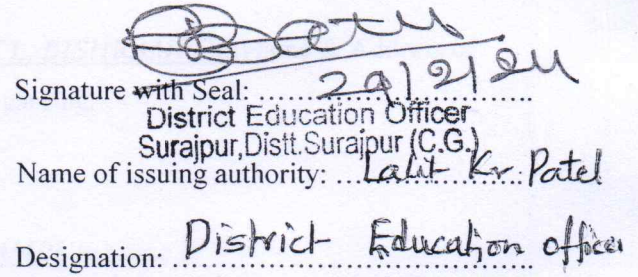 29/2/24
Signature with Seal: ..............................
District Education Officer
Surajpur,Distt.Surajpur (C.G.)
Name of issuing authority: ....Lalit Kr. Patel
Designation: District Education officer